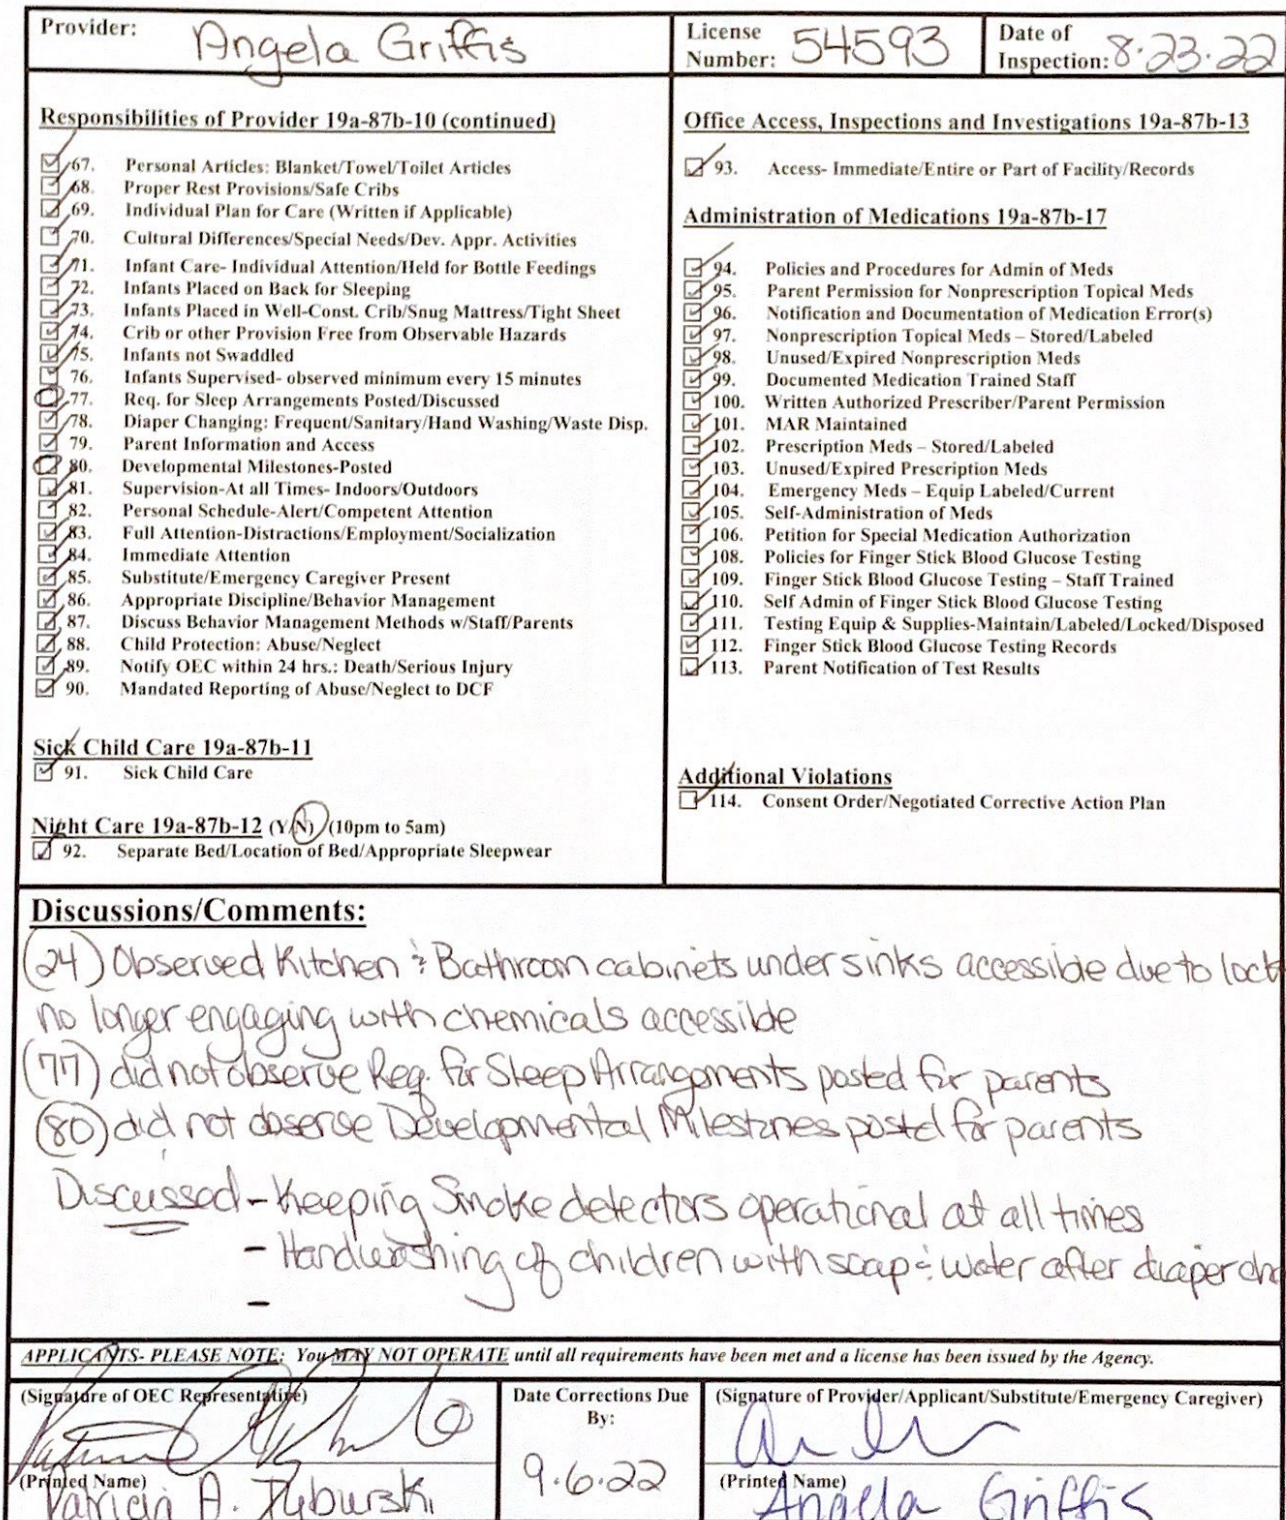 Provider: Angela Griffis
License Number: 54593
Date of Inspection: 8·23·22
Responsibilities of Provider 19a-87b-10 (continued)
67. Personal Articles: Blanket/Towel/Toilet Articles
68. Proper Rest Provisions/Safe Cribs
69. Individual Plan for Care (Written if Applicable)
70. Cultural Differences/Special Needs/Dev. Appr. Activities
71. Infant Care- Individual Attention/Held for Bottle Feedings
72. Infants Placed on Back for Sleeping
73. Infants Placed in Well-Const. Crib/Snug Mattress/Tight Sheet
74. Crib or other Provision Free from Observable Hazards
75. Infants not Swaddled
76. Infants Supervised- observed minimum every 15 minutes
77. Req. for Sleep Arrangements Posted/Discussed
78. Diaper Changing: Frequent/Sanitary/Hand Washing/Waste Disp.
79. Parent Information and Access
80. Developmental Milestones-Posted
81. Supervision-At all Times- Indoors/Outdoors
82. Personal Schedule-Alert/Competent Attention
83. Full Attention-Distractions/Employment/Socialization
84. Immediate Attention
85. Substitute/Emergency Caregiver Present
86. Appropriate Discipline/Behavior Management
87. Discuss Behavior Management Methods w/Staff/Parents
88. Child Protection: Abuse/Neglect
89. Notify OEC within 24 hrs.: Death/Serious Injury
90. Mandated Reporting of Abuse/Neglect to DCF
Sick Child Care 19a-87b-11
91. Sick Child Care
Night Care 19a-87b-12 (Y/N) (10pm to 5am)
92. Separate Bed/Location of Bed/Appropriate Sleepwear
Office Access, Inspections and Investigations 19a-87b-13
93. Access- Immediate/Entire or Part of Facility/Records
Administration of Medications 19a-87b-17
94. Policies and Procedures for Admin of Meds
95. Parent Permission for Nonprescription Topical Meds
96. Notification and Documentation of Medication Error(s)
97. Nonprescription Topical Meds – Stored/Labeled
98. Unused/Expired Nonprescription Meds
99. Documented Medication Trained Staff
100. Written Authorized Prescriber/Parent Permission
101. MAR Maintained
102. Prescription Meds – Stored/Labeled
103. Unused/Expired Prescription Meds
104. Emergency Meds – Equip Labeled/Current
105. Self-Administration of Meds
106. Petition for Special Medication Authorization
108. Policies for Finger Stick Blood Glucose Testing
109. Finger Stick Blood Glucose Testing – Staff Trained
110. Self Admin of Finger Stick Blood Glucose Testing
111. Testing Equip & Supplies-Maintain/Labeled/Locked/Disposed
112. Finger Stick Blood Glucose Testing Records
113. Parent Notification of Test Results
Additional Violations
114. Consent Order/Negotiated Corrective Action Plan
Discussions/Comments:
(24) Observed Kitchen & Bathroom cabinets under sinks accessible due to lock
no longer engaging with chemicals accessible
(77) did not observe Req. for Sleep Arrangements posted for parents
(80) did not observe Developmental Milestones posted for parents
Discussed - Keeping Smoke detectors operational at all times
- Handwashing of children with soap & water after diaper cha
-
APPLICANTS- PLEASE NOTE: You MAY NOT OPERATE until all requirements have been met and a license has been issued by the Agency.
(Signature of OEC Representative)
(Printed Name)
Patricia A.
Date Corrections Due
By:
9·6·22
(Signature of Provider/Applicant/Substitute/Emergency Caregiver)
(Printed Name)
Angela Griffis